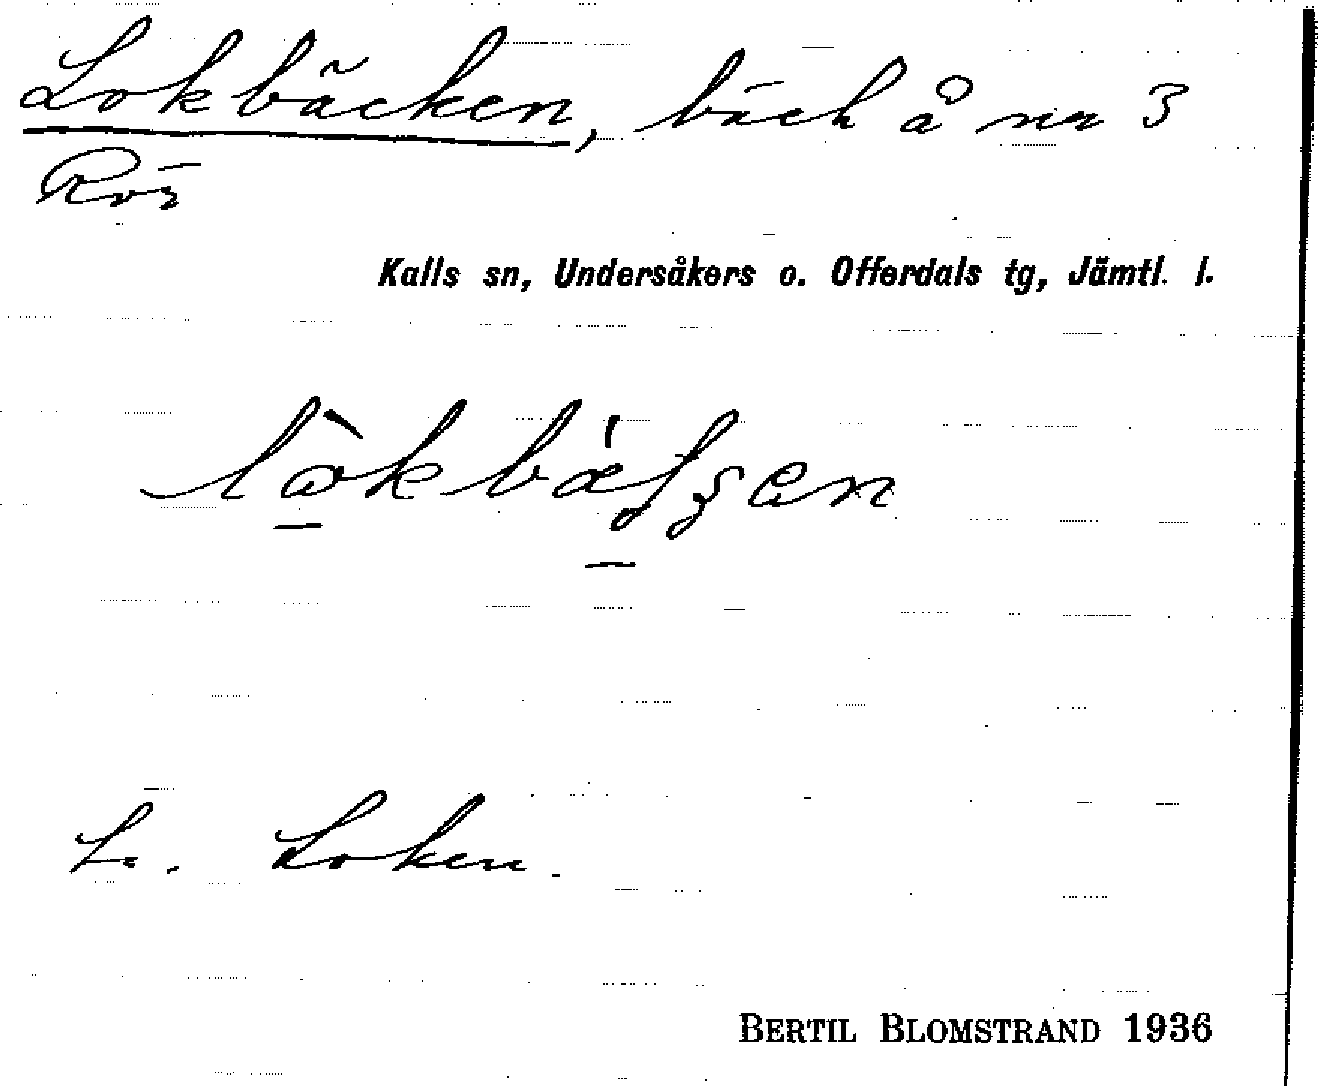 Lokbäcken, bäck å nr 3
Röi
Kalls sn, Undersåkers o. Offerdals tg, Jämtl. l.
Se. Loken.
BERTIL BLOMSTRAND 1936